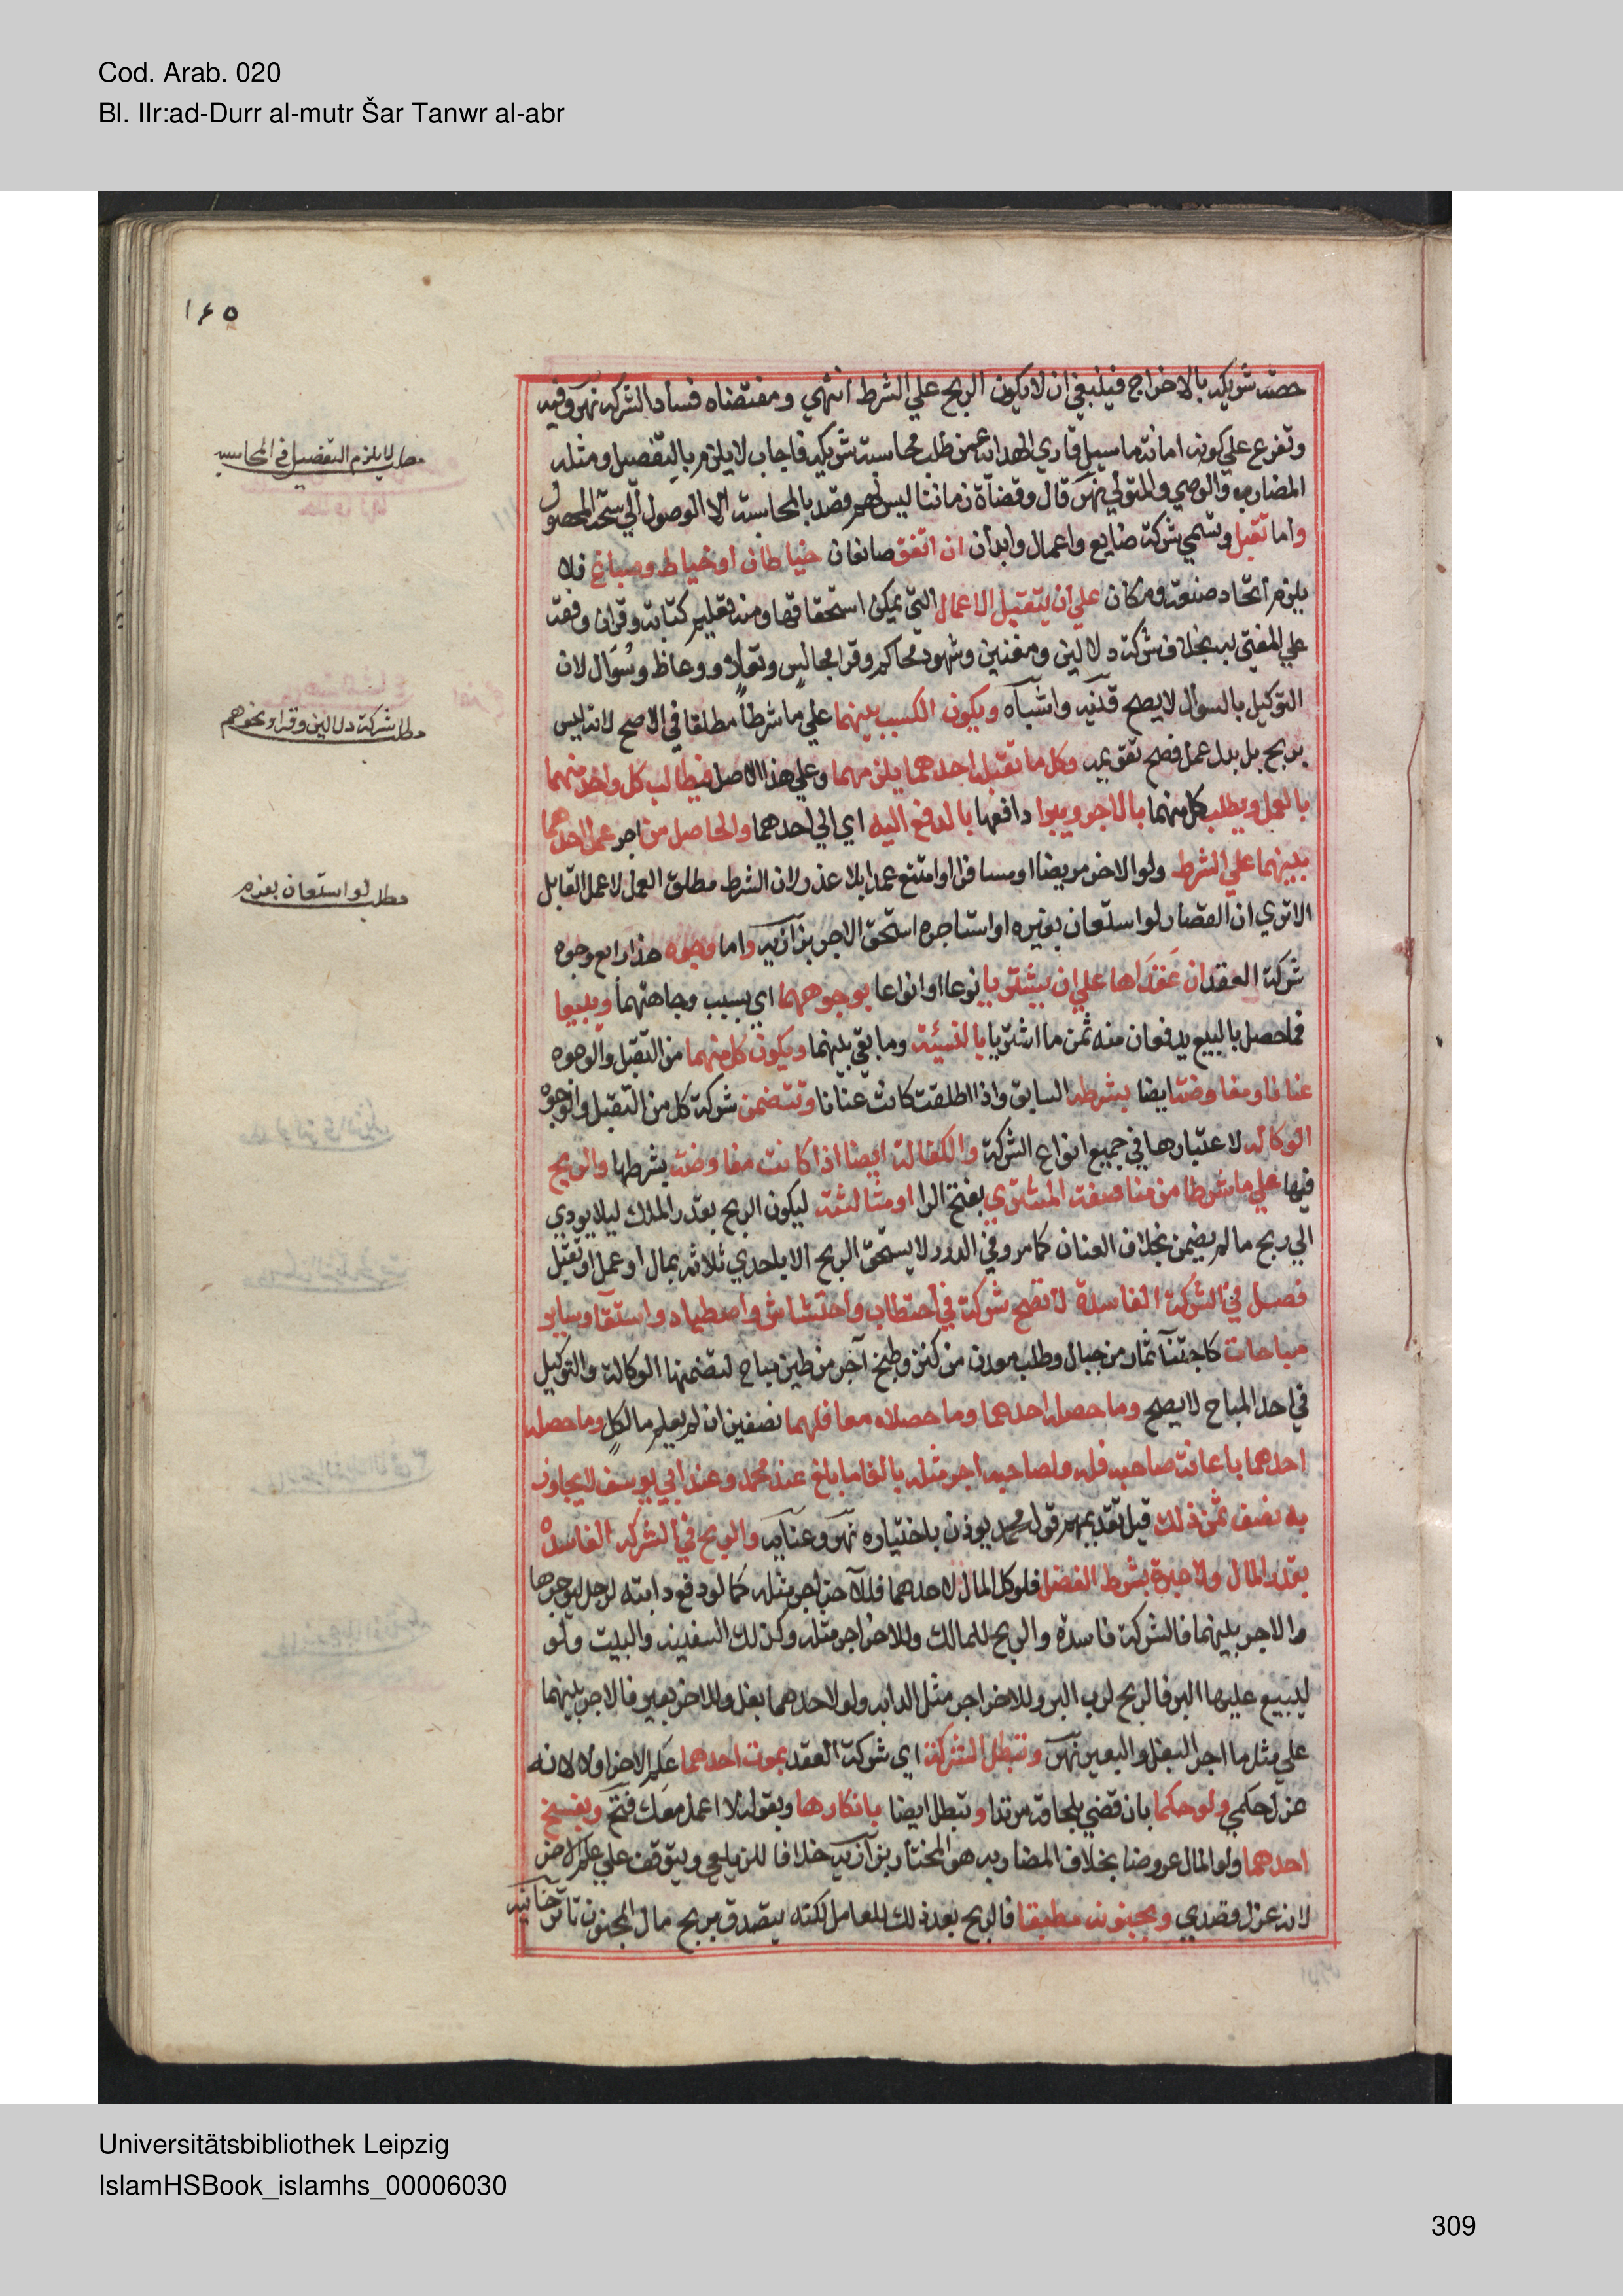 Cod. Arab. 020
Bl. IIr:ad-Durr al-mutr Šar Tanwr al-abr
١٤٥
حصة شريكه بالاخراج فينبغي ان لا يكون الربح علي الشرط انتهي ومقتضاه فساد الشركة نهر وفيه
وتفرع علي كونه امانة ما سيل قاري الهداية عمن طلب محاسبة شريكه فاجاب لا يلزم بالتفصيل ومثله
المضارب والوصي والمتولي نهر قال وقضاة زماننا ليس لهم قصد بالمحاسبة الا الوصول الي سحت المحصول
واما تقبل وتسمي شركة صنايع واعمال وابدان ان اتفق صانعان خياطان او خياط وصباغ فلا
يلزم اتحاد صنعة ومكان علي ان يتقبل الاعمال التي يمكن استحقاقها ومنه تعليم كتابة وقران وفقه
علي المفتي به بخلاف شركة دلالين ومغنين وشهود محاكم وقرا مجالس وتعاز ووعاظ وسؤال لان
التوكيل بالسوال لا يصح قنية واشباه ويكون الكسب بينهما علي ما شرطا مطلقا في الاصح لانه ليس
بربح بل بدل عمل فصح تقويمه وكل ما تقبله احدهما يلزمهما وعلي هذا الاصل فيطالب كل واحد منهما
بالعمل ويطلب كل منهما بالاجر ويبرا دافعها بالدفع اليه اي الي احدهما والحاصل من اجر عمل احدهما
بينهما علي الشرط ولو الاخر مريضا او مسافرا او امتنع عمدا بلا عذر لان الشرط مطلق العمل لا عمل القابل
الا تري ان القصار لو استعان بغيره او استاجره استحق الاجر بزازية واما وجوه هذا رابع وجوه
شركة العقد ان عقداها علي ان يشتريا نوعا او انواعا بوجوههما اي بسبب وجاهتهما ويبيعا
فما حصل بالبيع يدفعان منه ثمن ما اشتريا بالنسيئة وما بقي بينهما ويكون كل منهما من التقبل والوجوه
عنانا ومفاوضة ايضا بشرطه السابق واذا اطلقت كانت عنانا وتتضمن شركة كل من التقبل والوجوه
الوكالة لاعتبارها في جميع انواع الشركة والكفالة ايضا اذا كانت مفاوضة بشرطها والربح
فيها علي ما شرطا من مناصفة المشتري بفتح الرا او مثالثة ليكون الربح بقدر الملك ليلا يودي
الي ربح ما لم يضمن بخلاف العنان كما مر وفي الدرر لا يستحق الربح الا باحدي ثلاثة بمال او عمل او تقبل
فصل في الشركة الفاسدة لا تصح شركة في احتطاب واحتشاش واصطياد واستقا وساير
مباحات كاجتناء ثمار من جبال وطلب معدن من كنز وطبخ آجر من طين مباح لتضمنها الوكالة والتوكيل
في اخذ المباح لا يصح وما حصله احدهما وما حصلاه معا فلهما نصفين ان لم يعلم ما لكل وما حصله
احدهما باعانة صاحبه فله ولصاحبه اجر مثله بالغا ما بلغ عند محمد وعند ابي يوسف لا يجاوز
به نصف ثمن ذلك قيل تقديمهم قول محمد يوذن باختياره نهر وعناية والربح في الشركة الفاسدة
بقدر المال ولا عبرة بشرط الفضل فلو كل المال لاحدهما فللآخر اجر مثله كما لو دفع دابته لرجل ليوجرها
والاجر بينهما فالشركة فاسدة والربح للمالك وللاخر اجر مثله وكذلك السفينة والبيت ولو
ليبيع عليها البر فالربح لرب البر وللاخر اجر مثل الدابة ولو لاحدهما بغل وللاخر بعير فالاجر بينهما
علي مثل ما اجر البغل والبعير نهر وتبطل الشركة اي شركة العقد بموت احدهما علم الاخر او لا لانه
عزل حكمي ولو حكما بان قضي بلحاقه مرتدا وتبطل ايضا بانكارها وبقوله لا اعمل معك فتح وبفسخ
احدهما ولو المال عروضا بخلاف المضاربة هو المختار بزازية خلافا للزيلعي ويتوقف علي علم الاخر
لانه عزل قصدي وبجنونه مطبقا فالربح بعد ذلك للعامل لكنه يتصدق بربح مال المجنون تاترخانيه
مطلب لا يلزم التفصيل في المحاسبة
مطلب شركة دلالين وقرا ونحوهم
مطلب لو استعان بغيره
Universitätsbibliothek Leipzig
IslamHSBook_islamhs_00006030
309